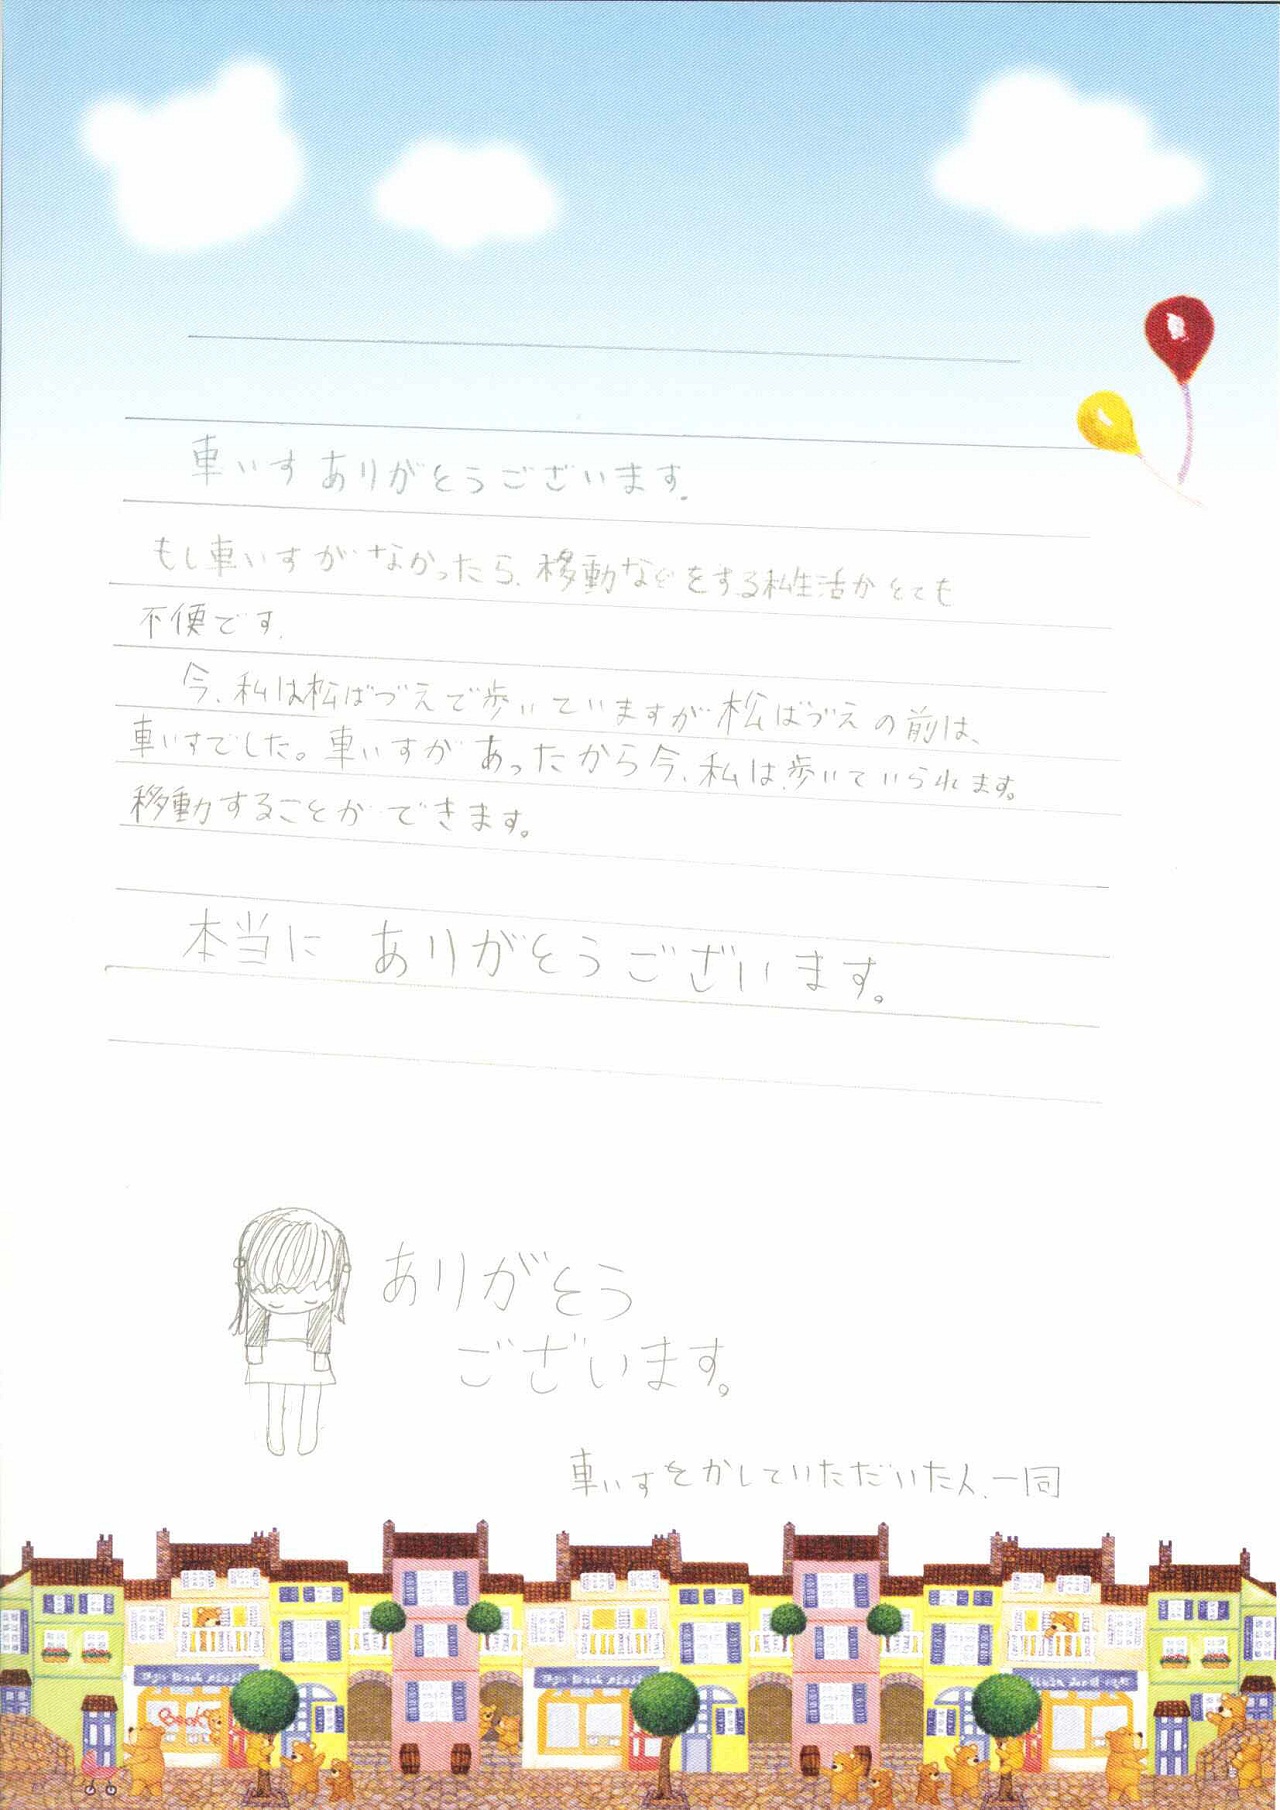 車いすありがとうございます。
もし車いすがなかったら、移動などをする私生活がとても
不便です。
今、私は松ばづえで歩いていますが松ばづえの前は、
車いすでした。車いすがあったから今、私は歩いていられます。
移動することができます。
本当に ありがとうございます。
ありがとう
ございます。
車いすをかしていただいた人、一同
Book